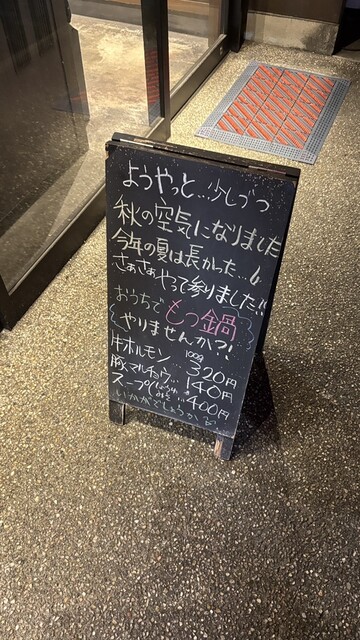 ようやっと…少しづつ
秋の空気になりました
今年の夏は長かった…
さぁさぁやって参りました!!
おうちでもつ鍋
やりませんか?!
牛ホルモン 100g 320円
豚マルチョウ… 140円
スープ(しょうゆ みそ …400円
いかがでしょうか